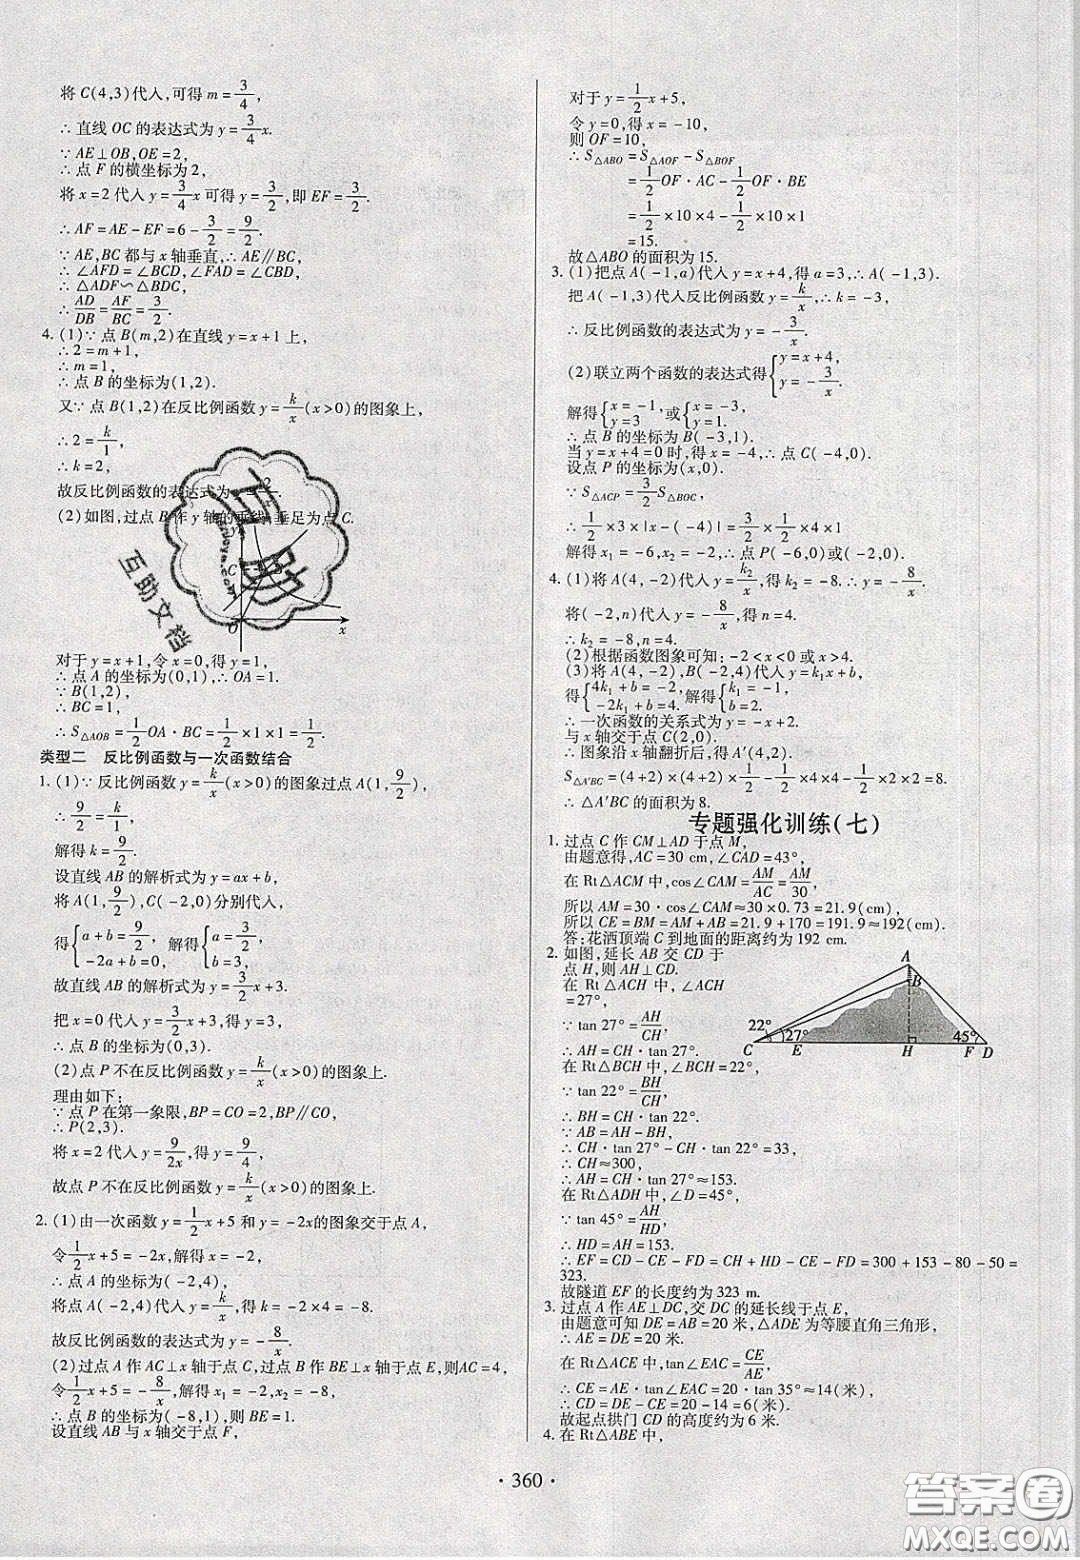 将 C(4,3)代入,可得 m=3/4,
∴直线 OC 的表达式为 y=3/4x.
∵AE⊥OB,OE=2,
∴点 F 的横坐标为2,
将 x=2代入 y=3/4x 可得 y=3/2,即 EF=3/2.
∴AF=AE-EF=6-3/2=9/2.
∵AE,BC 都与 x 轴垂直,∴AE∥BC.
∴∠AFD=∠BCD,∠FAD=∠CBD.
∴△ADF∽△BDC,
∴AD/DB=AF/BC=3/2.
4. (1)∵点 B(m,2)在直线 y=x+1上,
∴2=m+1,
∴m=1,
∴点 B 的坐标为(1,2).
又∵点 B(1,2)在反比例函数 y=k/x(x>0)的图象上,
∴2=k/1,
∴k=2,
故反比例函数的表达式为 y=2/x.
(2)如图,过点 B 作 y 轴的垂线,垂足为点 C.
y
C
B
O
x
对于 y=x+1,令 x=0,得 y=1,
∴点 A 的坐标为(0,1),∴OA=1.
∵B(1,2),
∴BC=1,
∴S△AOB=1/2OA·BC=1/2×1×1=1/2.
类型二 反比例函数与一次函数结合
1. (1)∵反比例函数 y=k/x(x>0)的图象过点 A(1,9/2),
∴9/2=k/1,
解得 k=9/2.
设直线 AB 的解析式为 y=ax+b,
将 A(1,9/2),C(-2,0)分别代入,
得{a+b=9/2, -2a+b=0, 解得{a=3/2, b=3.
故直线 AB 的解析式为 y=3/2x+3.
把 x=0代入 y=3/2x+3,得 y=3,
∴点 B 的坐标为(0,3).
(2)点 P 不在反比例函数 y=k/x(x>0)的图象上.
理由如下:
∵点 P 在第一象限,BP=CO=2,BP∥CO,
∴P(2,3).
将 x=2代入 y=9/2x,得 y=9/4,
故点 P 不在反比例函数 y=k/x(x>0)的图象上.
2. (1)由一次函数 y=1/2x+5和 y=-2x的图象交于点 A,
令1/2x+5=-2x,解得 x=-2,
∴点 A 的坐标为(-2,4),
将点 A(-2,4)代入 y=k/x,得 k=-2×4=-8.
故反比例函数的表达式为 y=-8/x.
(2)过点 A 作 AC⊥x 轴于点 C,过点 B 作 BE⊥x 轴于点 E,则AC=4,
令1/2x+5=-8/x,解得 x₁=-2,x₂=-8,
∴点 B 的坐标为(-8,1),则 BE=1.
设直线 AB 与 x 轴交于点 F,
对于 y=1/2x+5,
令 y=0,得 x=-10,
则 OF=10,
∴S△ABO=S△AOF-S△BOF
=1/2OF·AC-1/2OF·BE
=1/2×10×4-1/2×10×1
=15.
故△ABO 的面积为15.
3. (1)把点 A(-1,a)代入 y=x+4,得 a=3,∴A(-1,3).
把 A(-1,3)代入反比例函数 y=k/x,∴k=-3,
∴反比例函数的表达式为 y=-3/x.
(2)联立两个函数的表达式得{y=x+4, y=-3/x.
解得{x=-1 y=3 或{x=-3, y=1.
∴点 B 的坐标为 B(-3,1).
当 y=x+4=0时,得 x=-4,∴点 C(-4,0).
设点 P 的坐标为(x,0).
∵S△ACP=3/2S△BOC,
∴1/2×3×|x-(-4)|=3/2×1/2×4×1
解得 x₁=-6,x₂=-2,∴点 P(-6,0)或(-2,0).
4. (1)将 A(4,-2)代入 y=k₂/x,得 k₂=-8.∴y=-8/x.
将(-2,n)代入 y=-8/x,得 n=4.
∴k₂=-8,n=4.
(2)根据函数图象可知:-2<x<0或 x>4.
(3)将 A(4,-2),B(-2,4)代入 y=k₁x+b,
得{4k₁+b=-2, -2k₁+b=4. 解得{k₁=-1, b=2.
∴一次函数的关系式为 y=-x+2.
与 x 轴交于点 C(2,0).
∴图象沿 x 轴翻折后,得 A′(4,2).
S△A′BC=(4+2)×(4+2)×1/2-1/2×4×4-1/2×2×2=8.
∴△A′BC 的面积为8.
专题强化训练(七)
1. 过点 C 作 CM⊥AD 于点 M,
由题意得,AC=30 cm,∠CAD=43°,
在 Rt△ACM 中,cos∠CAM=AM/AC=AM/30,
所以 AM=30·cos∠CAM≈30×0.73=21.9(cm),
所以 CE=BM=AM+AB=21.9+170=191.9≈192(cm).
答:花洒顶端 C 到地面的距离约为192 cm.
2. 如图,延长 AB 交 CD 于
点 H,则 AH⊥CD.
在 Rt△ACH 中,∠ACH
=27°,
∵tan 27°=AH/CH,
∴AH=CH·tan 27°.
在 Rt△BCH 中,∠BCH=22°,
∵tan 22°=BH/CH,
∴BH=CH·tan 22°.
∵AB=AH-BH,
∴CH·tan 27°-CH·tan 22°=33,
∴CH≈300,
∴AH=CH·tan 27°≈153.
在 Rt△ADH 中,∠D=45°,
∵tan 45°=AH/HD,
∴HD=AH=153.
∴EF=CD-CE-FD=CH+HD-CE-FD=300+153-80-50=
323.
故隧道 EF 的长度约为323 m.
A
B
22°
27°
45°
C
E
H
F
D
3. 过点 A 作 AE⊥DC,交 DC 的延长线于点 E,
由题意可知 DE=AB=20米,△ADE 为等腰直角三角形,
∴AE=DE=20米.
在 Rt△ACE 中,∵tan∠EAC=CE/AE,
∴CE=AE·tan∠EAC=20·tan 35°≈14(米),
∴CD=DE-CE=20-14=6(米).
故起点拱门 CD 的高度约为6米.
4. 在 Rt△ABE 中,
·360·
互助
互助文档
答案圈
MXQE.COM